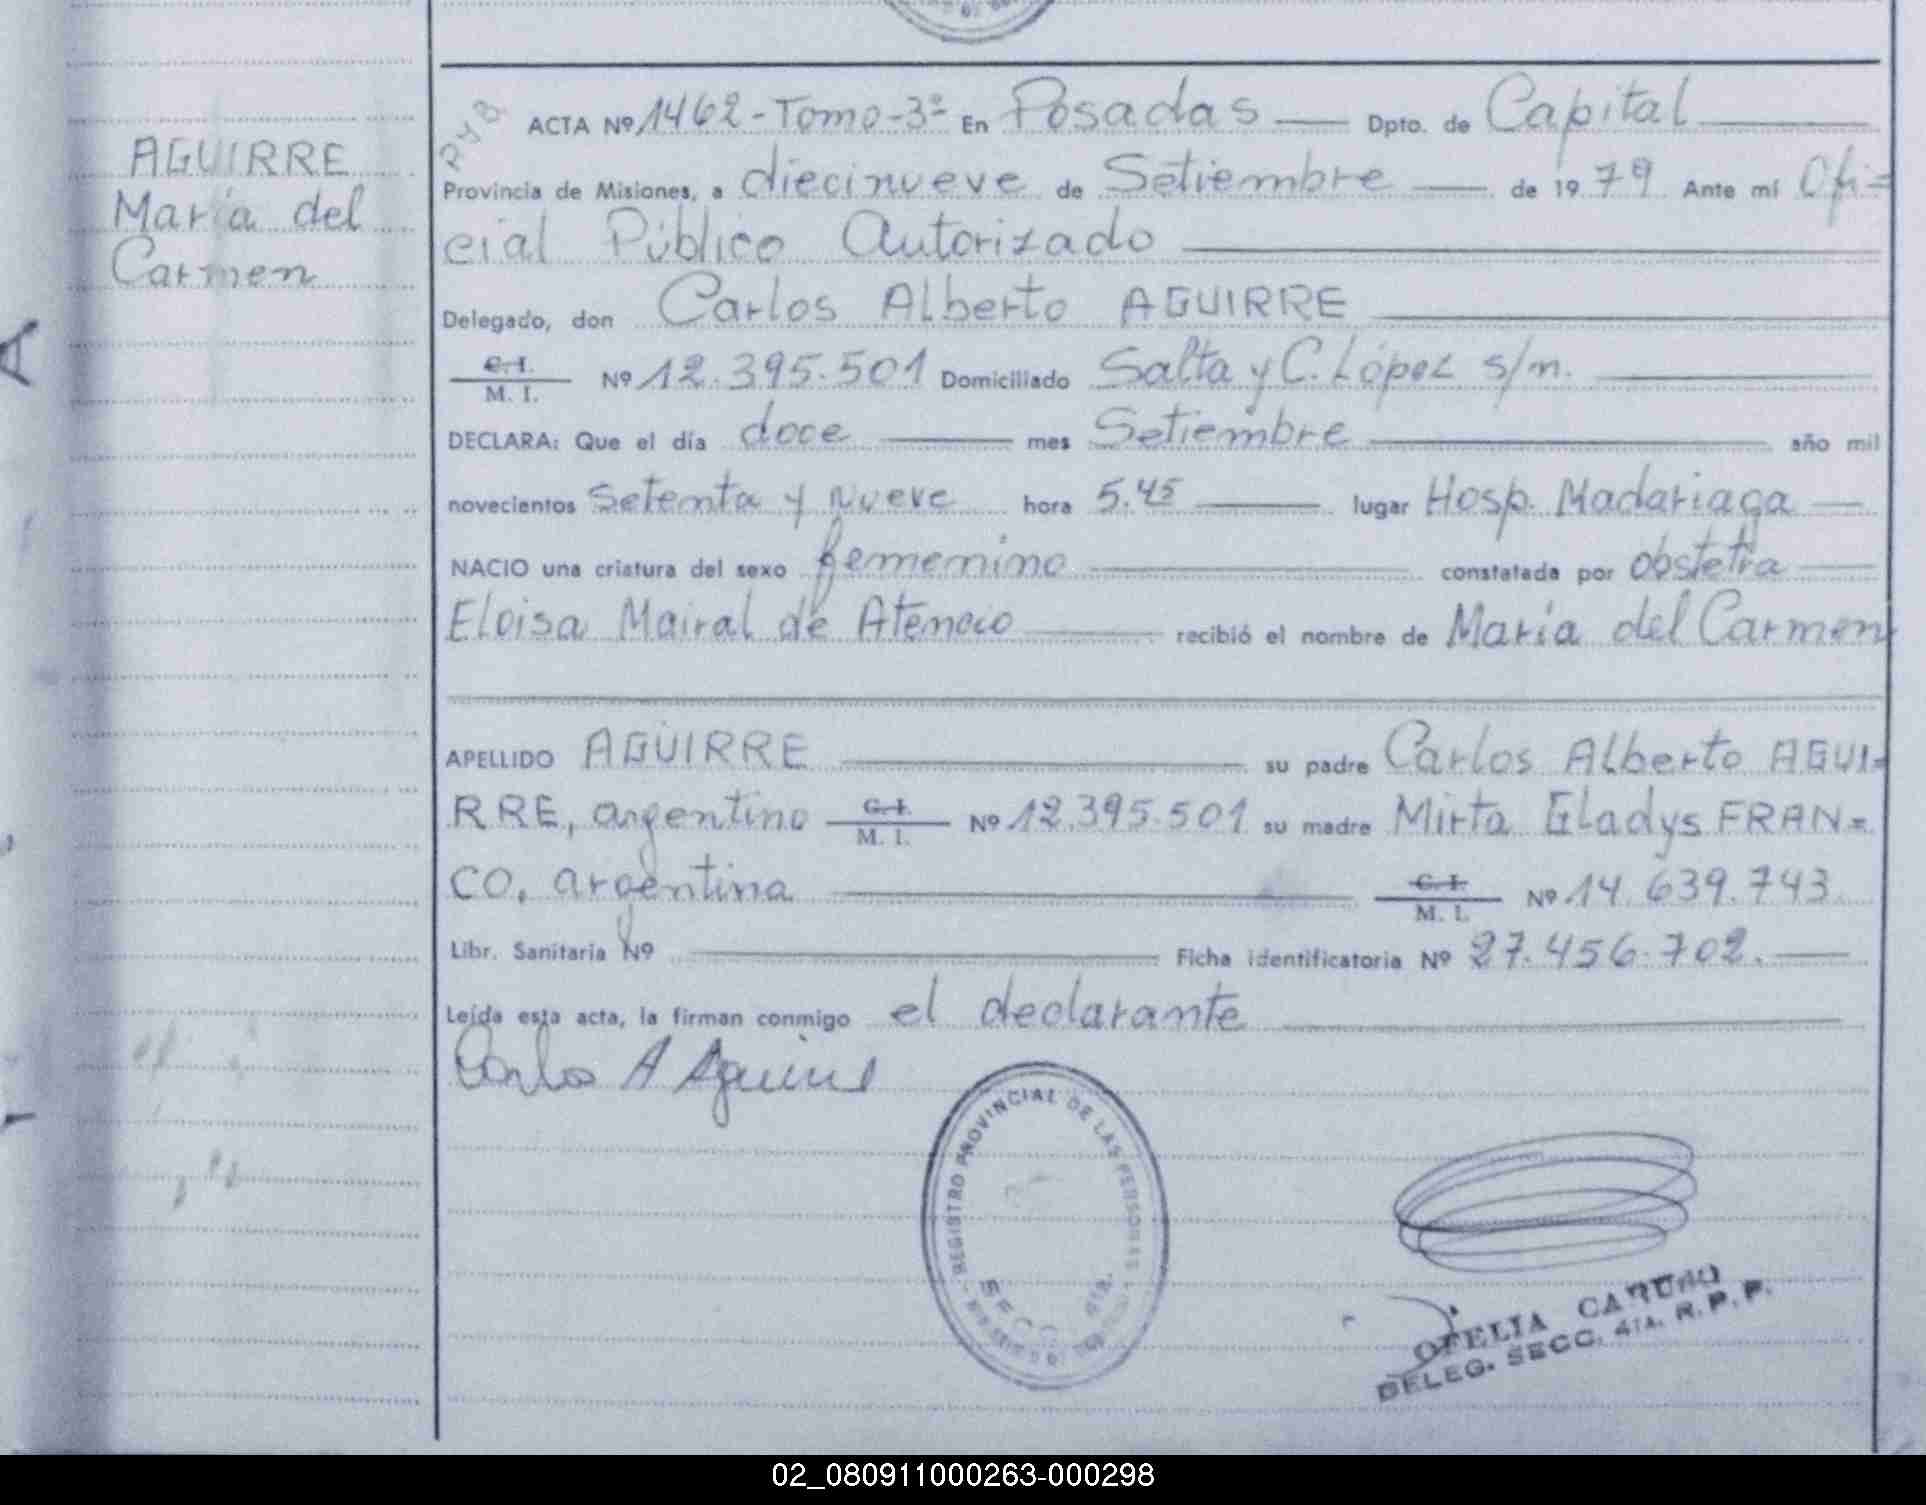 AGUIRRE
María del
Carmen
ACTA Nº 1462-Tomo-3º En Posadas Dpto. de Capital
Provincia de Misiones, a diecinueve de Setiembre de 1979 Ante mí Ofi=
cial Público Autorizado
Delegado, don Carlos Alberto AGUIRRE
C. I.
M. I. Nº 12.395.501 Domiciliado Salta y C. López s/n.
DECLARA: Que el día doce mes Setiembre año mil
novecientos Setenta y Nueve hora 5.45 lugar Hosp. Madariaga
NACIO una criatura del sexo femenino constatada por obstetra
Eloisa Mairal de Atencio recibió el nombre de María del Carmen
APELLIDO AGUIRRE su padre Carlos Alberto AGUI=
RRE, argentino C. I. M. I. Nº 12.395.501 su madre Mirta Gladys FRAN=
CO, argentina C. I. M. I. Nº 14.639.743
Libr. Sanitaria Nº Ficha identificatoria Nº 27.456.702.
Leída esta acta, la firman conmigo el declarante
Carlos A Aguirre
REGISTRO PROVINCIAL DE LAS PERSONAS
SECC. 4ta.
OFELIA
DELEG. SECC. 4TA. R. P. P.
02_080911000263-000298